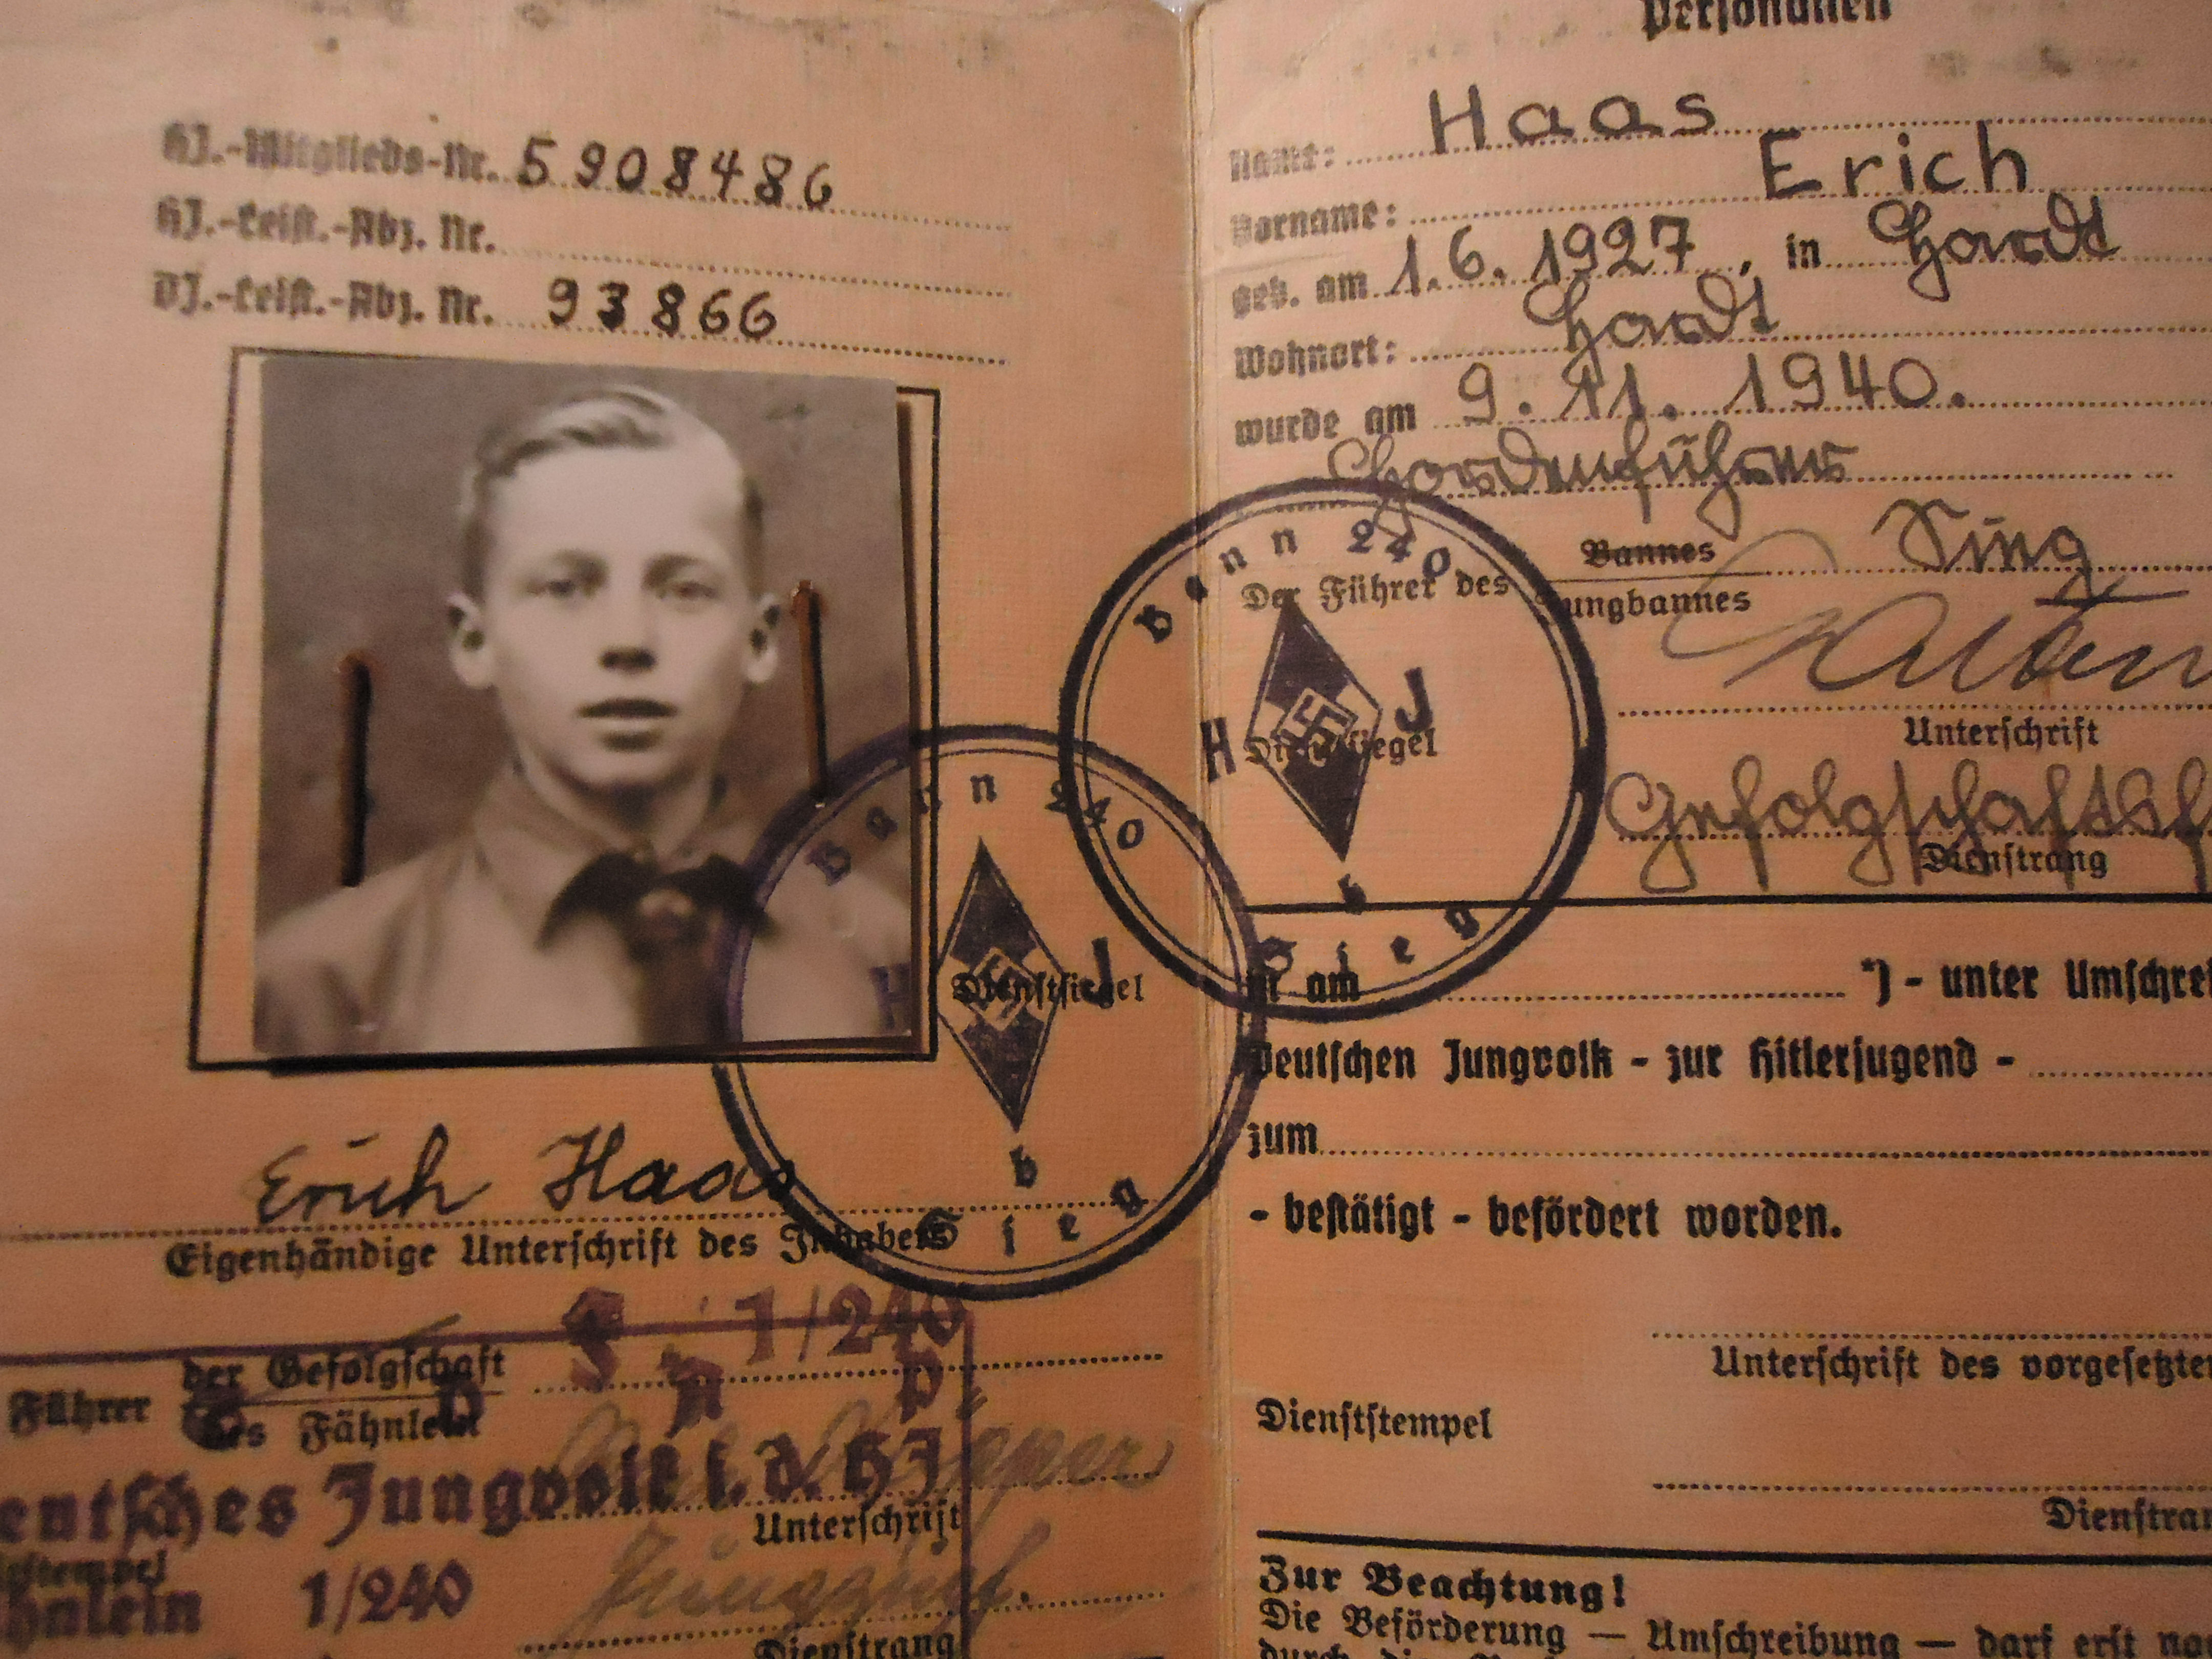 HJ.-Mitglieds-Nr. 5908486
HJ.-Leist.-Abz. Nr.
DJ.-Leist.-Abz. Nr. 93866
Bann 240
H J
Dienstsiegel
Sieg
Erich Haas
Eigenhändige Unterschrift des Inhabers
F. 1/240
Führer der Gefolgschaft
des Fähnlein
Deutsches Jungvolk i. d. HJ
Unterschrift
1/240
Jungzugf.
Dienstrang
Personalien
Name: Haas
Vorname: Erich
geb. am 1.6.1927, in Hardt
Wohnort: Hardt
wurde am 9.11.1940.
Hordenführer
Bann 240
Der Führer des Bannes Sieg
Jungbannes
H J
Dienstsiegel
Sieg
Unterschrift
Gefolgschaftsf
Dienstrang
ist am *) - unter Umschrei
Deutschen Jungvolk - zur Hitlerjugend -
zum
- bestätigt - befördert worden.
Unterschrift des vorgesetzten
Dienststempel
Dienstran
Zur Beachtung!
Die Beförderung — Umschreibung — darf erst na